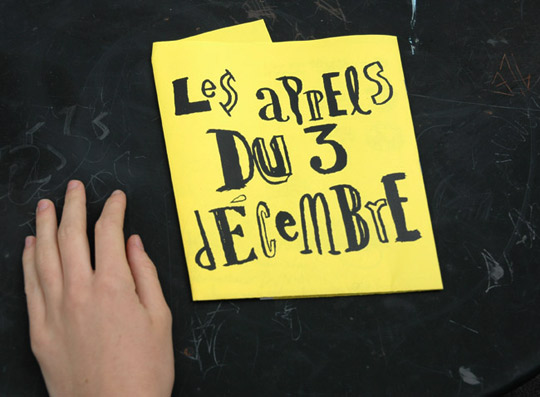 Les appels
du 3
décembre